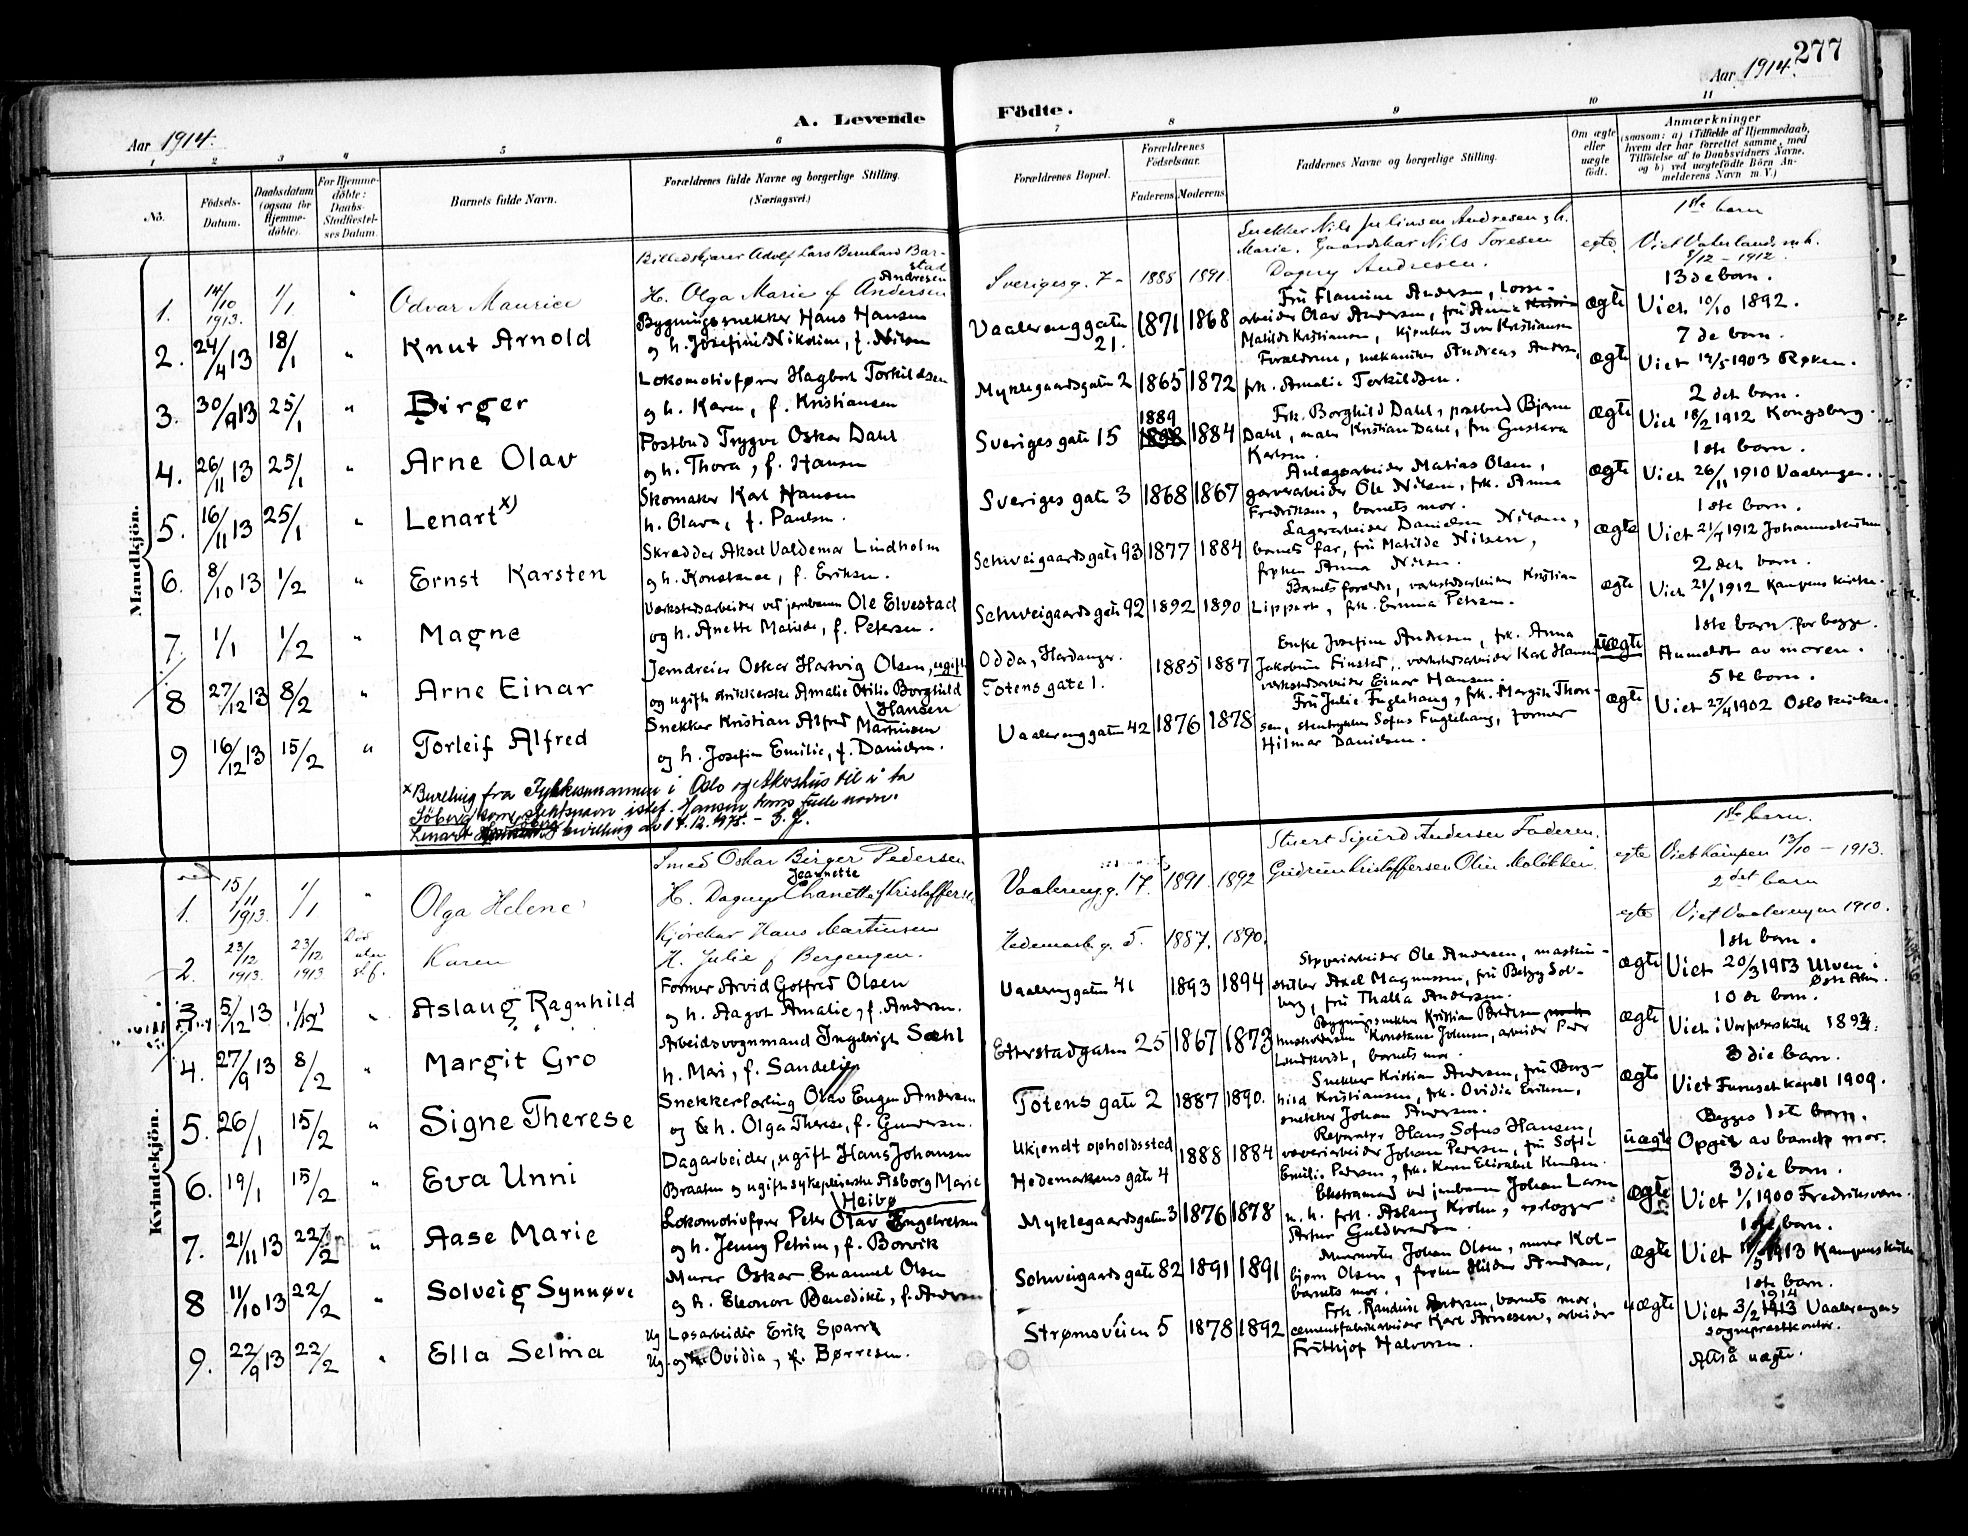 277
Aar 1914.
Aar 1914.
A. Levende Födte.
1 2 3 4 5 6 7 8 9 10 11
No.
Födsels-Datum.
Daabsdatum (ogsaa for Hjemme-döbte).
For Hjemme-döbte: Daabs-Stadfæstel-ses Datum.
Barnets fulde Navn.
Forældrenes fulde Navne og borgerlige Stilling.
(Næringsvei.)
Forældrenes Bopæl.
Forældrenes Födselsaar.
Faderens Moderens
Faddernes Navne og borgerlige Stilling.
Om ægte eller uægte födt.
Anmærkninger
(saasom: a) i Tilfælde af Hjemmedaab, hvem der har forrettet samme, med Tilföielse af to Daabsvidners Navne, og b) ved uægtefödte Börn An-melderens Navn m. V.)
Mandkjön.
1. 14/10 1913. 1/1 " Odvar Maurice
Billedskjærer Adolf Lars Bernhard Bar-stad
H. Olga Marie f Andersen Andresen
Sverigesg. 7 1885 1891.
Snekker Nils Julinsen Andresen & h.
Marie. Gaardskar Nils Toresen
Dagny Andresen.
egte 1ste barn
Viet Vaterlands mk.
8/12 - 1912.
2. 24/4 13 18/1 " Knut Arnold
Bygningssnekker Hans Hansen
og h. Josefine Nikoline, f. Nilsen
Vaalerenggaten 21. 1871 1868
Fru Flamine Andersen, losse-
arbeider Olav Andersen, fru Anna
Matilde Kristiansen, kjøusker Iver Kristiansen
ægte 13de barn.
Viet 10/10 1892.
3. 30/9 13 25/1 " Birger
Lokomotivfører Hagbart Torkildsen
og h. Karen, f. Kristiansen
Myklegaardsgaten 2 1865 1872
Forældrene, mekaniker Andreas Andersen,
frk. Amalie Torkildsen.
ægte 7 de barn.
Viet 12/5 1903 Røken.
4. 26/11 13 25/1 " Arne Olav
Postbud Trygve Oskar Dahl
og h. Thora, f. Hansen
Sveriges gate 15 1889 1884
Frk. Borghild Dahl, postbud Bjarne
Dahl, maler Kristian Dahl, fru Gustava
Karlsen.
ægte 2 det barn.
Viet 18/2 1912 Kongsberg.
5. 16/11 13 25/1 " Lenart x)
Skomaker Karl Hansen
h. Olava, f. Paulsen.
Sveriges gate 3 1868 1867
Anlægsarbeider Matias Olsen,
garverarbeider Ole Nilsen, frk. Anna
Fredriksen, barnets mor.
ægte 1ste barn.
Viet 26/11 1910 Vaalerengen.
6. 8/10 13 1/2 " Ernst Karsten
Skrædder Aksel Valdemar Lindholm
og h. Konstanse, f. Eriksen.
Schweigaardsgate 93 1877 1884
Lagerarbeider Danielsen Nilsen,
barnets far, fru Matilde Nilsen,
frøken Anna Nilsen.
ægte 1ste barn.
Viet 21/4 1912 Johanneskirken
7. 1/1 1/2 " Magne
Verkstedsarbeider ved jernbanen Ole Elvestad
og h. Anette Matilde, f. Petersen.
Schweigaardsgate 92 1892 1890
Barnets forældre, verkstedsarbeider Kristian
Lippert, frk. Emma Petersen.
ægte 2 det barn.
Viet 21/1 1912 Kampens kirke.
8 27/12 13 8/2 " Arne Einar
Jerndreier Oskar Hartvig Olsen, ugift
og ugift strikkerske Amalie Otilie Borghild Hansen
Odda, Hardanger.
Totens gate 1. 1885 1887
Enke Josefine Andresen, frk. Anna
Jakobine Finstad, verkstedsarbeider Karl Hansen
verkstedsarbeider Einar Hansen.
uægte 1ste barn for begge.
Anmeldt av moren.
9 16/12 13 15/2 " Torleif Alfred
Snekker Kristian Alfred Martinsen
og h. Josefine Emilie, f. Danielsen.
Vaalerenggaten 42 1876 1878
Fru Julie Fuglehaug, frk. Margit Thor-
sen, stentrykker Sofus Fuglehaug, former
Hilmar Danielsen.
ægte 5 te barn.
Viet 27/4 1902 Oslo kirke.
x Bevilling fra Fylkesmannen i Oslo og Akershus til å ta
Sjöberg som slektsnavn istf. Hansen, hans fulle navn:
Lenart Sjöberg bevilling av 17.12.1975.
Kvindekjön.
1. 15/11 1913. 1/1 " Olga Helene
Smed Oskar Birger Pedersen
H. Dagny Jeanette Chanette f Kristoffersen
Vaalerengg. 17. 1891. 1892
Stuert Sigurd Andersen Faderen.
Gudrun Kristoffersen Olin Moløkken
egte 1ste barn.
Viet Kampen 13/10 - 1913.
2. 23/12 1913. 23/12 1913 Død uten st.f. Karen
Kjørekar Hans Martinsen
H. Julie f Bergengen.
Hedemarkg. 5. 1887. 1890.
egte 2det barn
Viet Vaalerengen 1910.
3 5/12 13 1/2 " Aslaug Ragnhild
Former Arvid Gotfred Olsen
og h. Aagot Amalie, f. Andersen.
Vaalerenggaten 41 1893 1894
Støperiarbeider Ole Andersen, maskin-
stiller Axel Magnussen, fru Betzy Sol-
berg, fru Thalla Andersen.
ægte 1ste barn.
Viet 20/3 1913 Ulven i Østre Aker.
4. 27/9 13 8/2 " Margit Gro
Arbeidsvognmand Ingebrigt Sæhl
h. Mari, f. Sandelien
Etterstadgaten 25 1867 1873
Bygningssnekker Kristian Bredesen,
husholderske Konstanse Johnsen, arbeider Peder
Lundkvist, barnets mor.
ægte 10 de barn.
5. 26/1 15/2 " Signe Therese
Snekkerlærling Olav Eugen Andersen
og h. Olga Therese, f. Gundersen.
Totens gate 2 1887 1890.
Snekker Kristian Andersen, fru Borg-
hild Kristiansen, frk. Ovidia Eriksen,
snekker Johan Andersen.
ægte 3 die barn.
Viet Furuset kapel 1909.
6. 19/1 15/2 " Eva Unni
Dagarbeider, ugift Hans Johansen
Braaten og ugift sykepleierske Asborg Marie Heibø
Ukjendt opholdssted
Hedemarkens gate 4 1888 1884
Reparatør Hans Sofus Hansen,
væveriarbeider Johan Pedersen, fru Sofie
Emilie Pedersen, frk. Karen Elisabet Knudsen.
uægte Begges 1ste barn.
Opgit av barnets mor.
7. 21/11 13 22/2 " Aase Marie
Lokomotivfører Peter Olav Engebretsen
og h. Jenny Petrine, f. Borvik
Myklegaardsgaten 3 1876 1878
Ekstramand ved jernbanen Johan Larsen
m. h. frk. Aslaug Krohn, oplægger
Artur Guldbrandsen
ægte 3 die barn.
Viet 1/1 1900 Fredriksværn.
8 11/10 13 22/2 " Solveig Synnøve
Murer Oskar Emanuel Olsen
og h. Eleonore Benedikte, f. Andersen
Schweigaardsgate 82 1891 1891
Murmester Johan Olsen, murer Kol-
bjørn Olsen, frøken Hildur Andersen,
barnets mor.
ægte 1ste barn.
Viet 11/5 1913 Kampens kirke
9. 22/9 13 22/2 " Ella Selma
Ug. Løsarbeider Erik Sparr
Ug. og h. Ovidia, f. Børresen.
Strømsveien 5 1878 1892
Frk. Randine Andersen, barnets mor,
cementfabrikarbeider Karl Arnesen, arbeider
Fritthjof Halvorsen.
uægte 1ste barn.
1914
Viet 3/2 1913 Vaalerengens
sogneprestkontor.
Altså uægte.